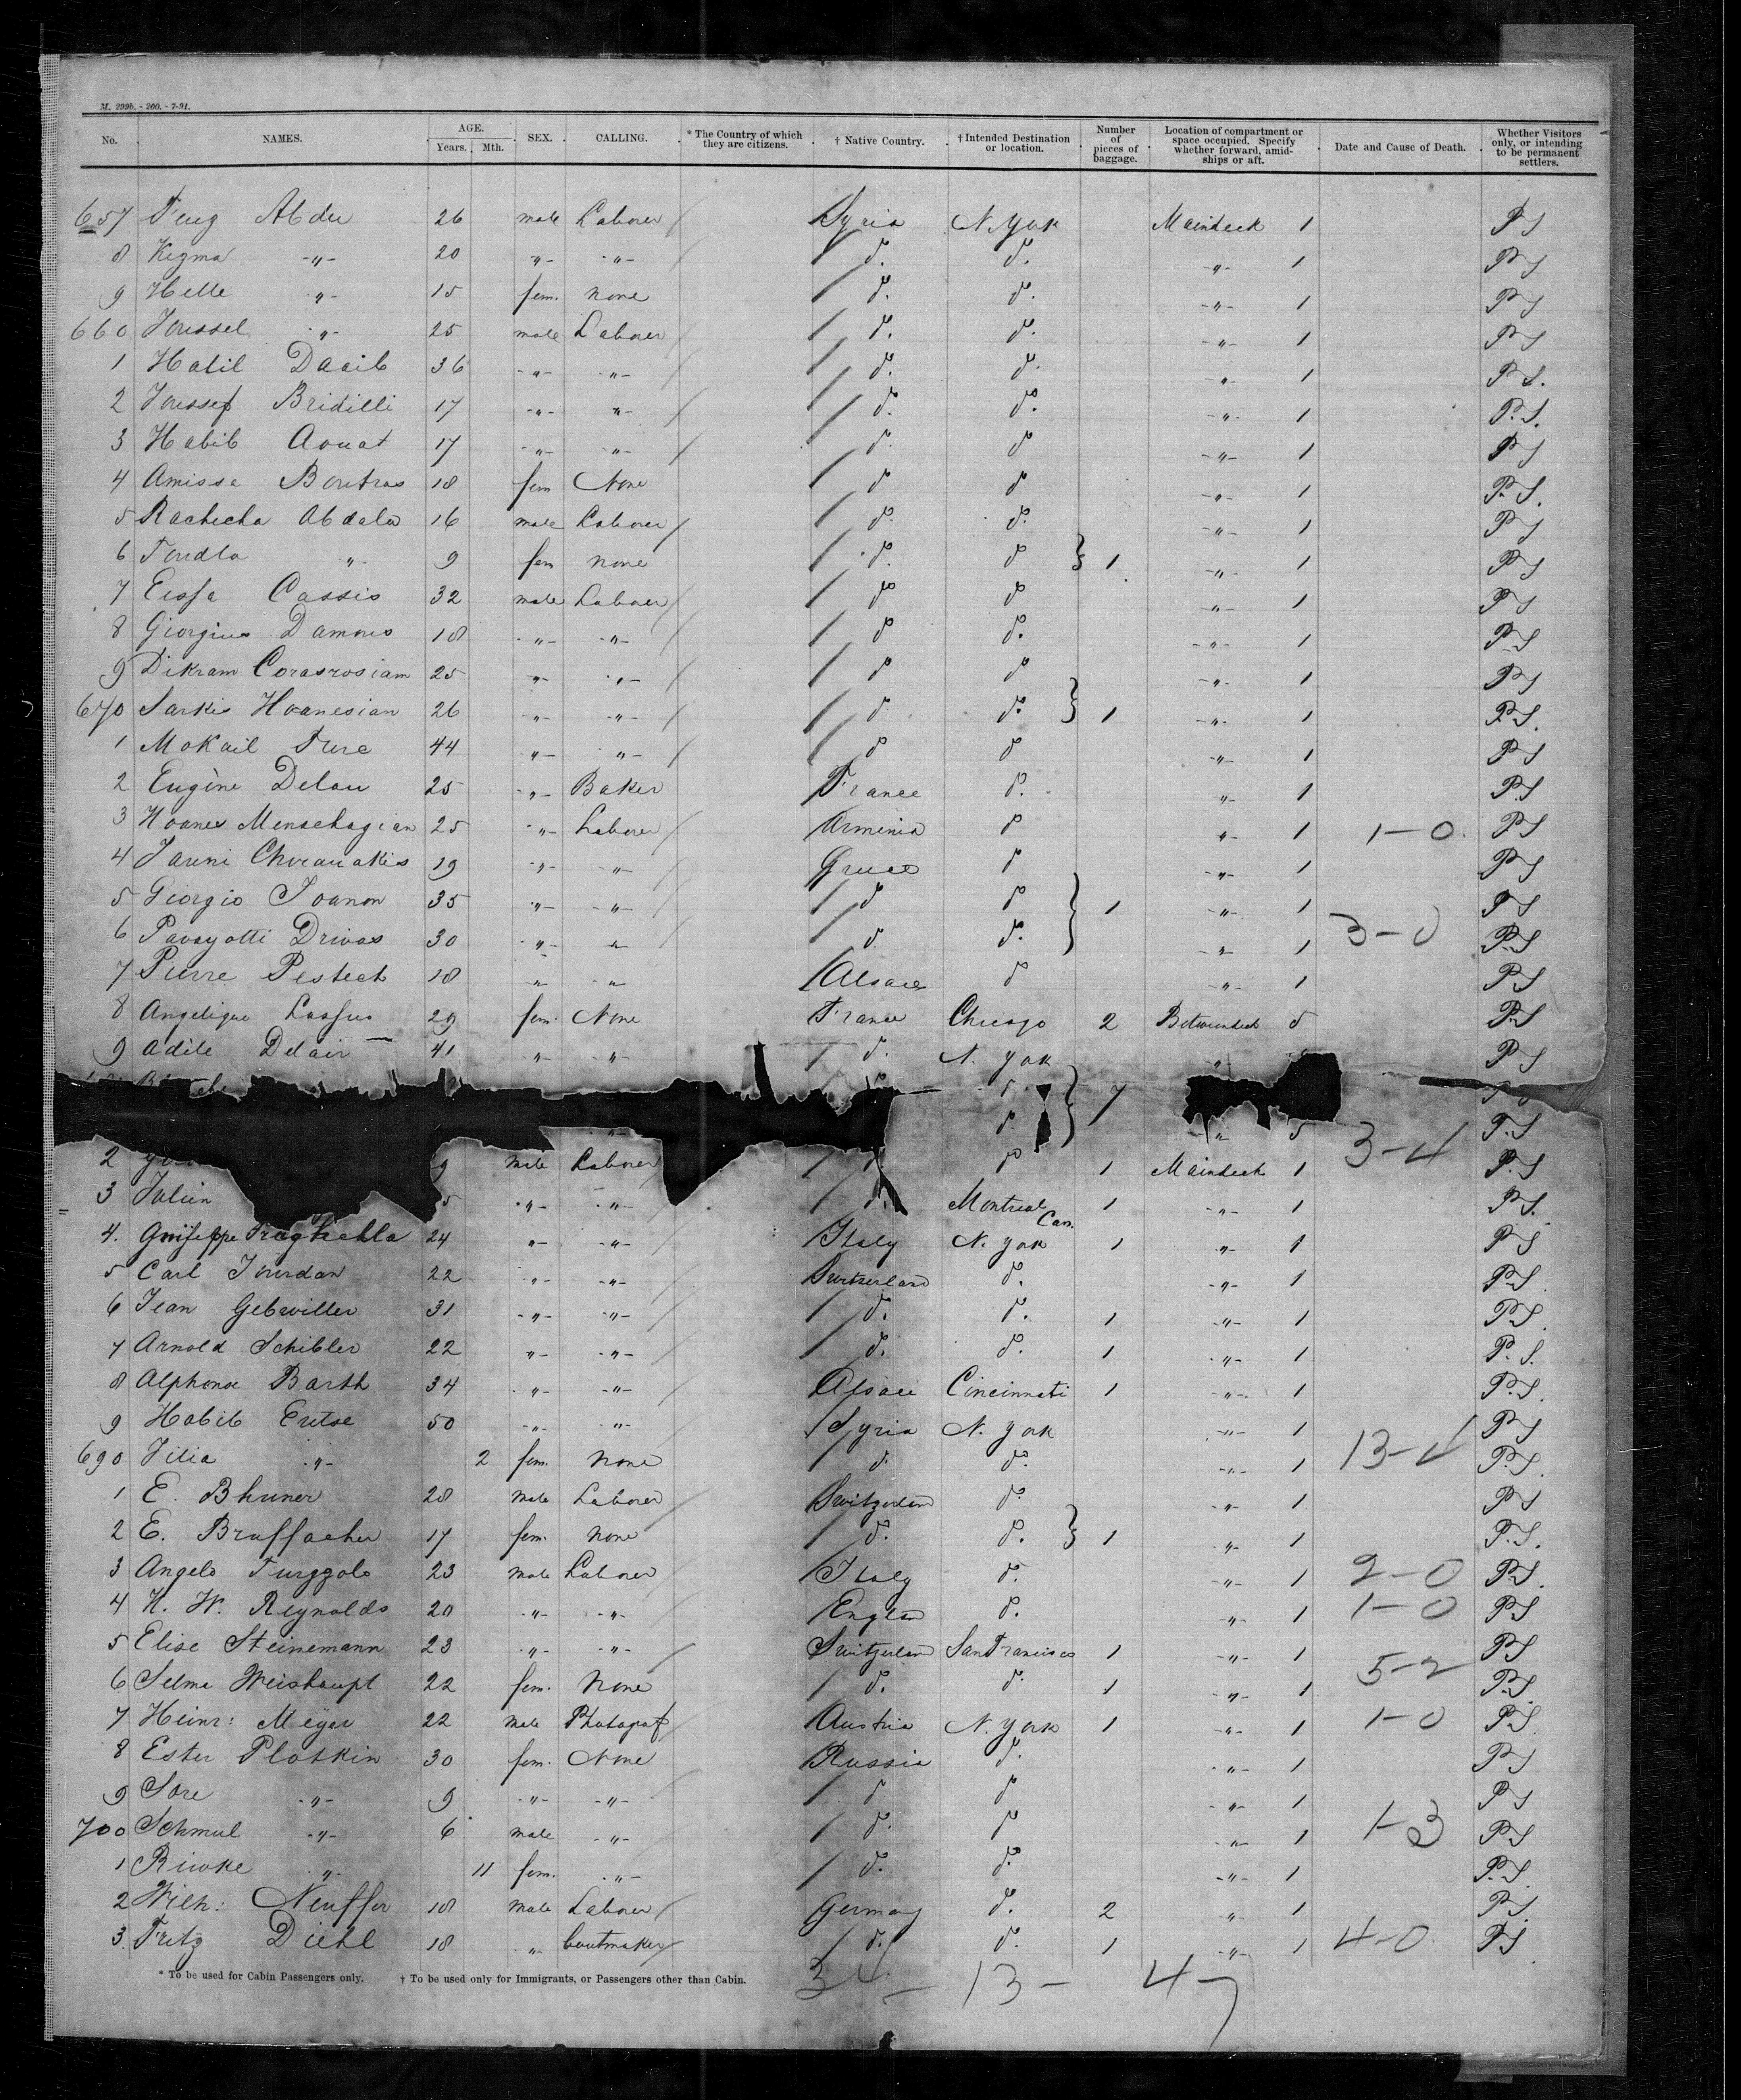 M. 299b. - 200. - 7-91.
No. NAMES. AGE. Years. Mth. SEX. CALLING. * The Country of which they are citizens. † Native Country. † Intended Destination or location. Number of pieces of baggage. Location of compartment or space occupied. Specify whether forward, amidships or aft. Date and Cause of Death. Whether Visitors only, or intending to be permanent settlers.
657 Abdu 26 male Laborer / Syria N. York Maindeck 1 PS
8 Kezma -"- 20 -"- -"- / d. d. -"- 1 PS
9 Helle -"- 15 fem. none / d. d. -"- 1 PS
660 Joussel -"- 25 male Laborer / d. d. -"- 1 PS
1 Halil Daaib 36 -"- -"- / d. d. -"- 1 P.S.
2 Joussef Bridilli 17 -"- -"- / d. d. -"- 1 P.S.
3 Habib Aouat 17 -"- -"- / d. d -"- 1 PS
4 Amissa Boutros 18 fem None / d d -"- 1 P.S.
5 Rachicha Abdala 16 male Laborer / d. d. -"- 1 PS
6 -"- 9 fem none / d. d } 1 -"- 1 PS
7 Eissa Cassis 32 male Laborer / d d -"- 1 PS
8 Giorgius Damous 18 -"- -"- / d d. -"- 1 P.S
9 Dikram Corasrosiam 25 -"- -"- / d d -"- 1 PS
670 Sarkis Hoanesian 26 -"- -"- / d d. } 1 -"- 1 P.S.
1 Mokail Ture 44 -"- -"- / d d -"- 1 PS
2 Eugène Delau 25 -"- Baker France d. -"- 1 P.S
3 Hoanes Menachagian 25 -"- Laborer / Arminia d -"- 1 1-0. PS
4 Janni 19 -"- -"- / Greece d -"- 1 PS
5 Giorgio Joanon 35 -"- -"- / d d } 1 -"- 1 PS
6 Panayotti Drivas 30 -"- -"- / d. d. -"- 1 3-0 P.S
7 Pierre Pestech 18 -"- -"- /Alsace d -"- 1 PS
8 Angelique Lassus 29 fem. None France Chicago 2 Betweendeck 5 P.S
9 Adèle Delair 41 -"- -"- / d. N. York -"- PS
d. } 7
-"- d. -"- 5 P.S
2 9 male Laborer / d 1 Maindeck 1 3-4 P.S
3 Julien 5 -"- -"- / d. Montreal Can. 1 -"- 1 P.S.
4. Guiseppe 24 -"- -"- / Italy N. York 1 -"- 1 PS
5 Carl Jourdan 22 -"- -"- / Switzerland d. -"- 1 P.S.
6 Jean Gebwiller 31 -"- -"- / d. d. 1 -"- 1 P.S.
7 Arnold Schibler 22 -"- -"- / d. d. 1 -"- 1 P. S.
8 Alphonse Barth 34 -"- -"- / Alsace Cincinnati 1 -"- 1 P.S.
9 Habib Eutse 50 -"- -"- Syria N. York -"- 1 PS
690 Jilia -"- 2 fem. none / d. d. -"- 1 13-4 P.S.
1 E. Bhuner 28 male Laborer / Switzerland d. -"- 1 PS
2 E. Bruffacher 17 fem. none / d. d. } 1 -"- 1 P.S.
3 Angelo Turzzolo 23 male Laborer / Italy d. -"- 1 2-0 PS.
4 H. W. Reynolds 20 -"- -"- /England d. -"- 1 1-0 PS
5 Elise Steinemann 23 -"- -"- / Switzerland San Francisco 1 -"- 1 PS
6 Selma Weishaupt 22 fem. none / d. d. 1 -"- 1 5-2 P.S.
7 Heinr: Meyer 22 male Photograf / Austria N. York 1 -"- 1 1-0 P.S.
8 Ester Plotkin 30 fem. None Russia d. -"- 1 PS
9 Sore -"- 9 -"- -"- / d d -"- 1 PS
700 Schmul -"- 6 male -"- / d. d -"- 1 1-3 PS
1 Riwke -"- 11 fem. -"- / d. d. -"- 1 P.S.
2 Wilh: Neuffer 18 male Laborer / Germany d. 2 -"- 1 P.S.
3. Fritz Diehl 18 -"- bootmaker / d. d. 1 -"- 1 4-0. PS
* To be used for Cabin Passengers only. † To be used only for Immigrants, or Passengers other than Cabin.
34 - 13 - 47